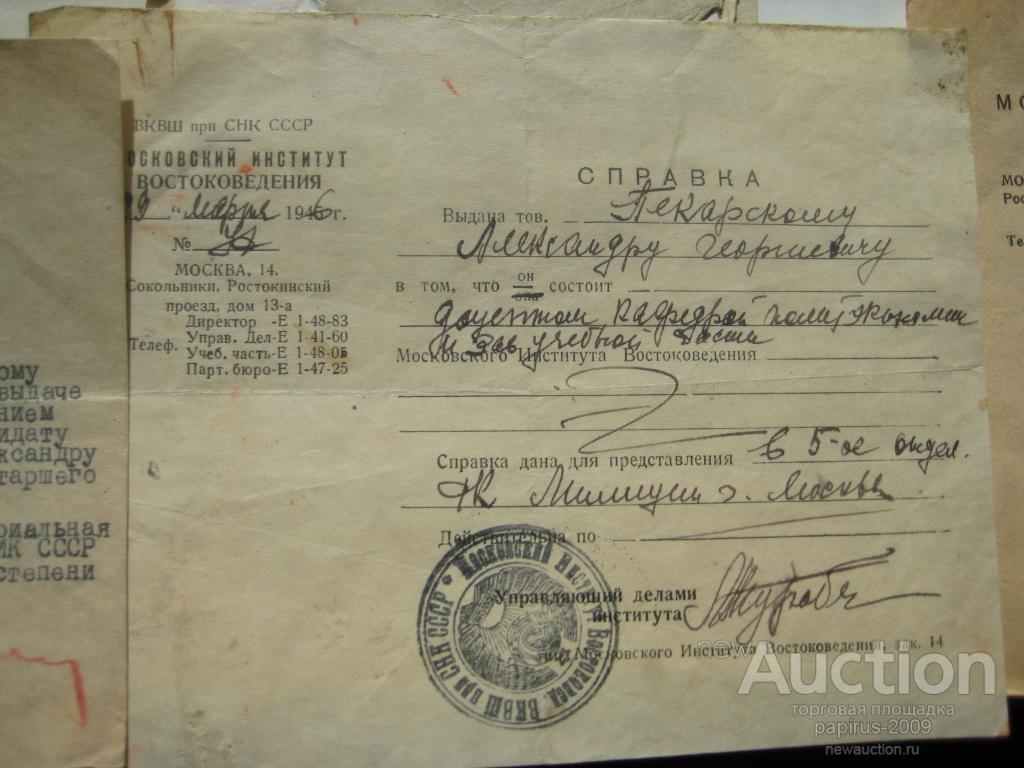 ВКВШ при СНК СССР
ОСКОВСКИЙ ИНСТИТУТ
ВОСТОКОВЕДЕНИЯ
9 " марта 1946 г.
№
МОСКВА, 14.
Сокольники, Ростокинский
проезд, дом 13-а
Телеф.
Директор -Е 1-48-83
Управ. Дел-Е 1-41-60
Учеб. часть-Е 1-48-05
Парт. бюро-Е 1-47-25
СПРАВКА
Выдана тов. Пекарскому
Александру Георгиевичу
в том, что он она состоит
доцентом кафедрой полит. экономии
и Зав учебной части
Московского Института Востоковедения
Справка дана для представления в 5-ое отдел.
Милиции г. Москвы
Действительна по
Управляющий делами
института
тип. Московского Института Востоковедения, зак. 14
Московский Институт Востоковед. ВКВШ при СНК СССР
ому
выдаче
нием
идату
ксандру
таршего
риальная
ИК СССР
степени
МО
МО
Рос
Те
Auction
торговая площадка
papirus-2009
newauction.ru